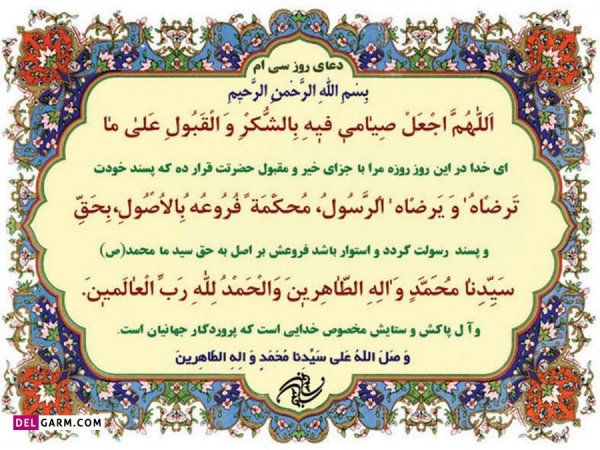 دعای روز سی ام
بِسْمِ اللهِ الرَّحْمنِ الرَّحیمِ
اَللّهُمَّ اجْعَلْ صِیامي فیهِ بِالشُّكْرِ وَ الْقَبُولِ عَلیٰ ما
ای خدا در این روز روزه مرا با جزای خیر و مقبول حضرتت قرار ده که پسند خودت
تَرضاهُ وَ یَرضاه الرَّسُولُ، مُحكَمَةً فُروعُهُ بِالاُصُولِ، بِحَقِّ
و پسند رسولت گردد و استوار باشد فروعش بر اصل به حق سید ما محمد(ص)
سَیِّدِنا مُحَمَّدٍ وَ الِهِ الطّاهِرینَ وَالْحَمْدُ لِلّهِ رَبِّ الْعالَمینَ.
و آل پاکش و ستایش مخصوص خدایی است که پروردگار جهانیان است.
وَ صَلَ اللهُ عَلی سَیِّدِنا مُحَمَدٍ وَ الِهِ الطاهِرینَ
DELGARM.COM